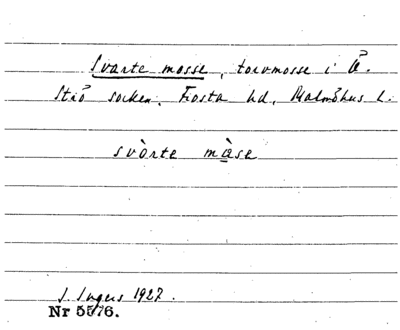 Svarte mosse, torvmosse i Ö.
Strö socken. Frosta hd, Malmöhus l.
svòrte màse
I. Ingers 1927.
Nr 5576.